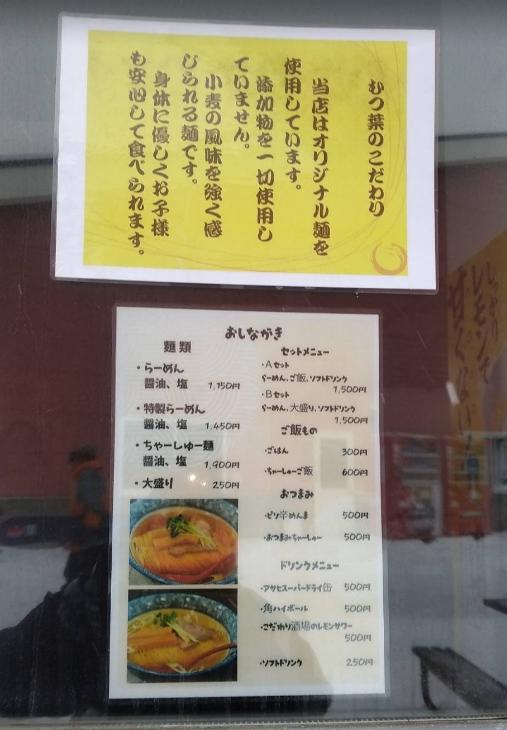 むつ葉のこだわり
当店はオリジナル麺を
使用しています。
添加物を一切使用し
ていません。
小麦の風味を強く感
じられる麺です。
身体に優しくお子様
も安心して食べられます。
おしながき
麺類
・らーめん
醤油、塩 1,150円
・特製らーめん
醤油、塩 1,450円
・ちゃーしゅー麺
醤油、塩 1,900円
・大盛り 250円
セットメニュー
・Aセット
らーめん、ご飯、ソフトドリンク
1,500円
・Bセット
らーめん、大盛り、ソフトドリンク
1,500円
ご飯もの
・ごはん 300円
・ちゃーしゅーご飯 600円
おつまみ
・ピリ辛めんま 500円
・おつまみちゃーしゅー 500円
ドリンクメニュー
・アサヒスーパードライ缶 500円
・角ハイボール 500円
・こだわり酒場のレモンサワー
500円
・ソフトドリンク 250円
レモンで
甘くない